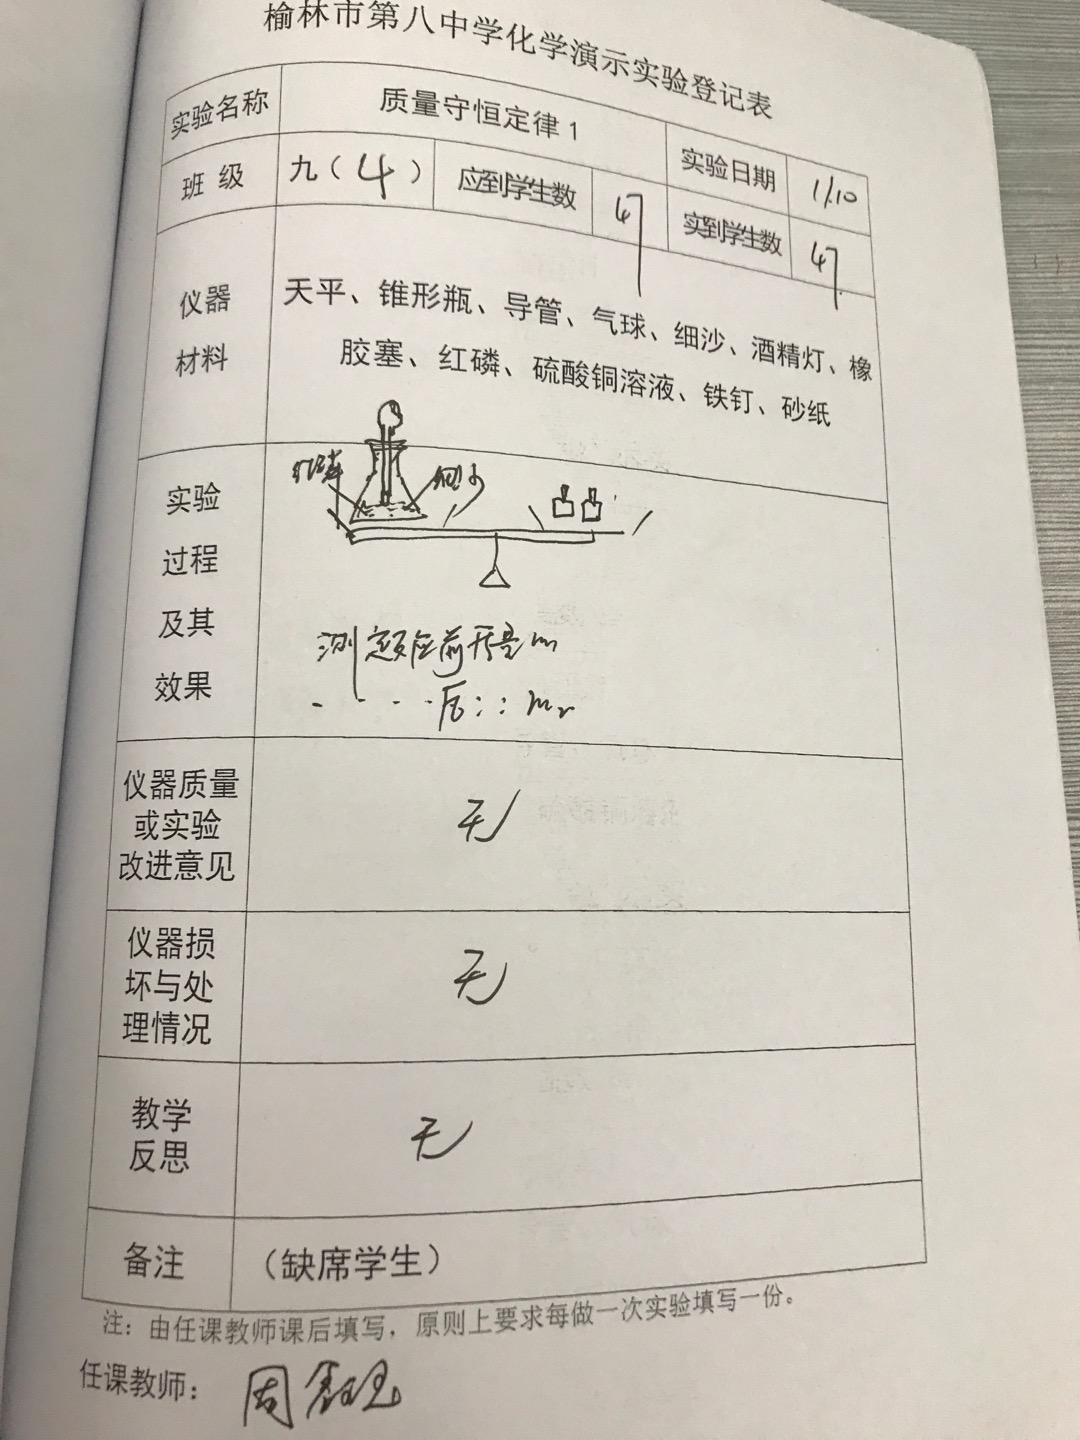 榆林市第八中学化学演示实验登记表
实验名称 质量守恒定律1 实验日期 1/10
班 级 九(4) 应到学生数 47 实到学生数 47
仪器
材料
天平、锥形瓶、导管、气球、细沙、酒精灯、橡
胶塞、红磷、硫酸铜溶液、铁钉、砂纸
实验
过程
及其
效果
红磷 细沙
测定反应前质量m
· · · · 后:: m₂
仪器质量
或实验
改进意见
无
仪器损
坏与处
理情况
无
教学
反思
无
备注 (缺席学生)
注:由任课教师课后填写,原则上要求每做一次实验填写一份。
任课教师: 周